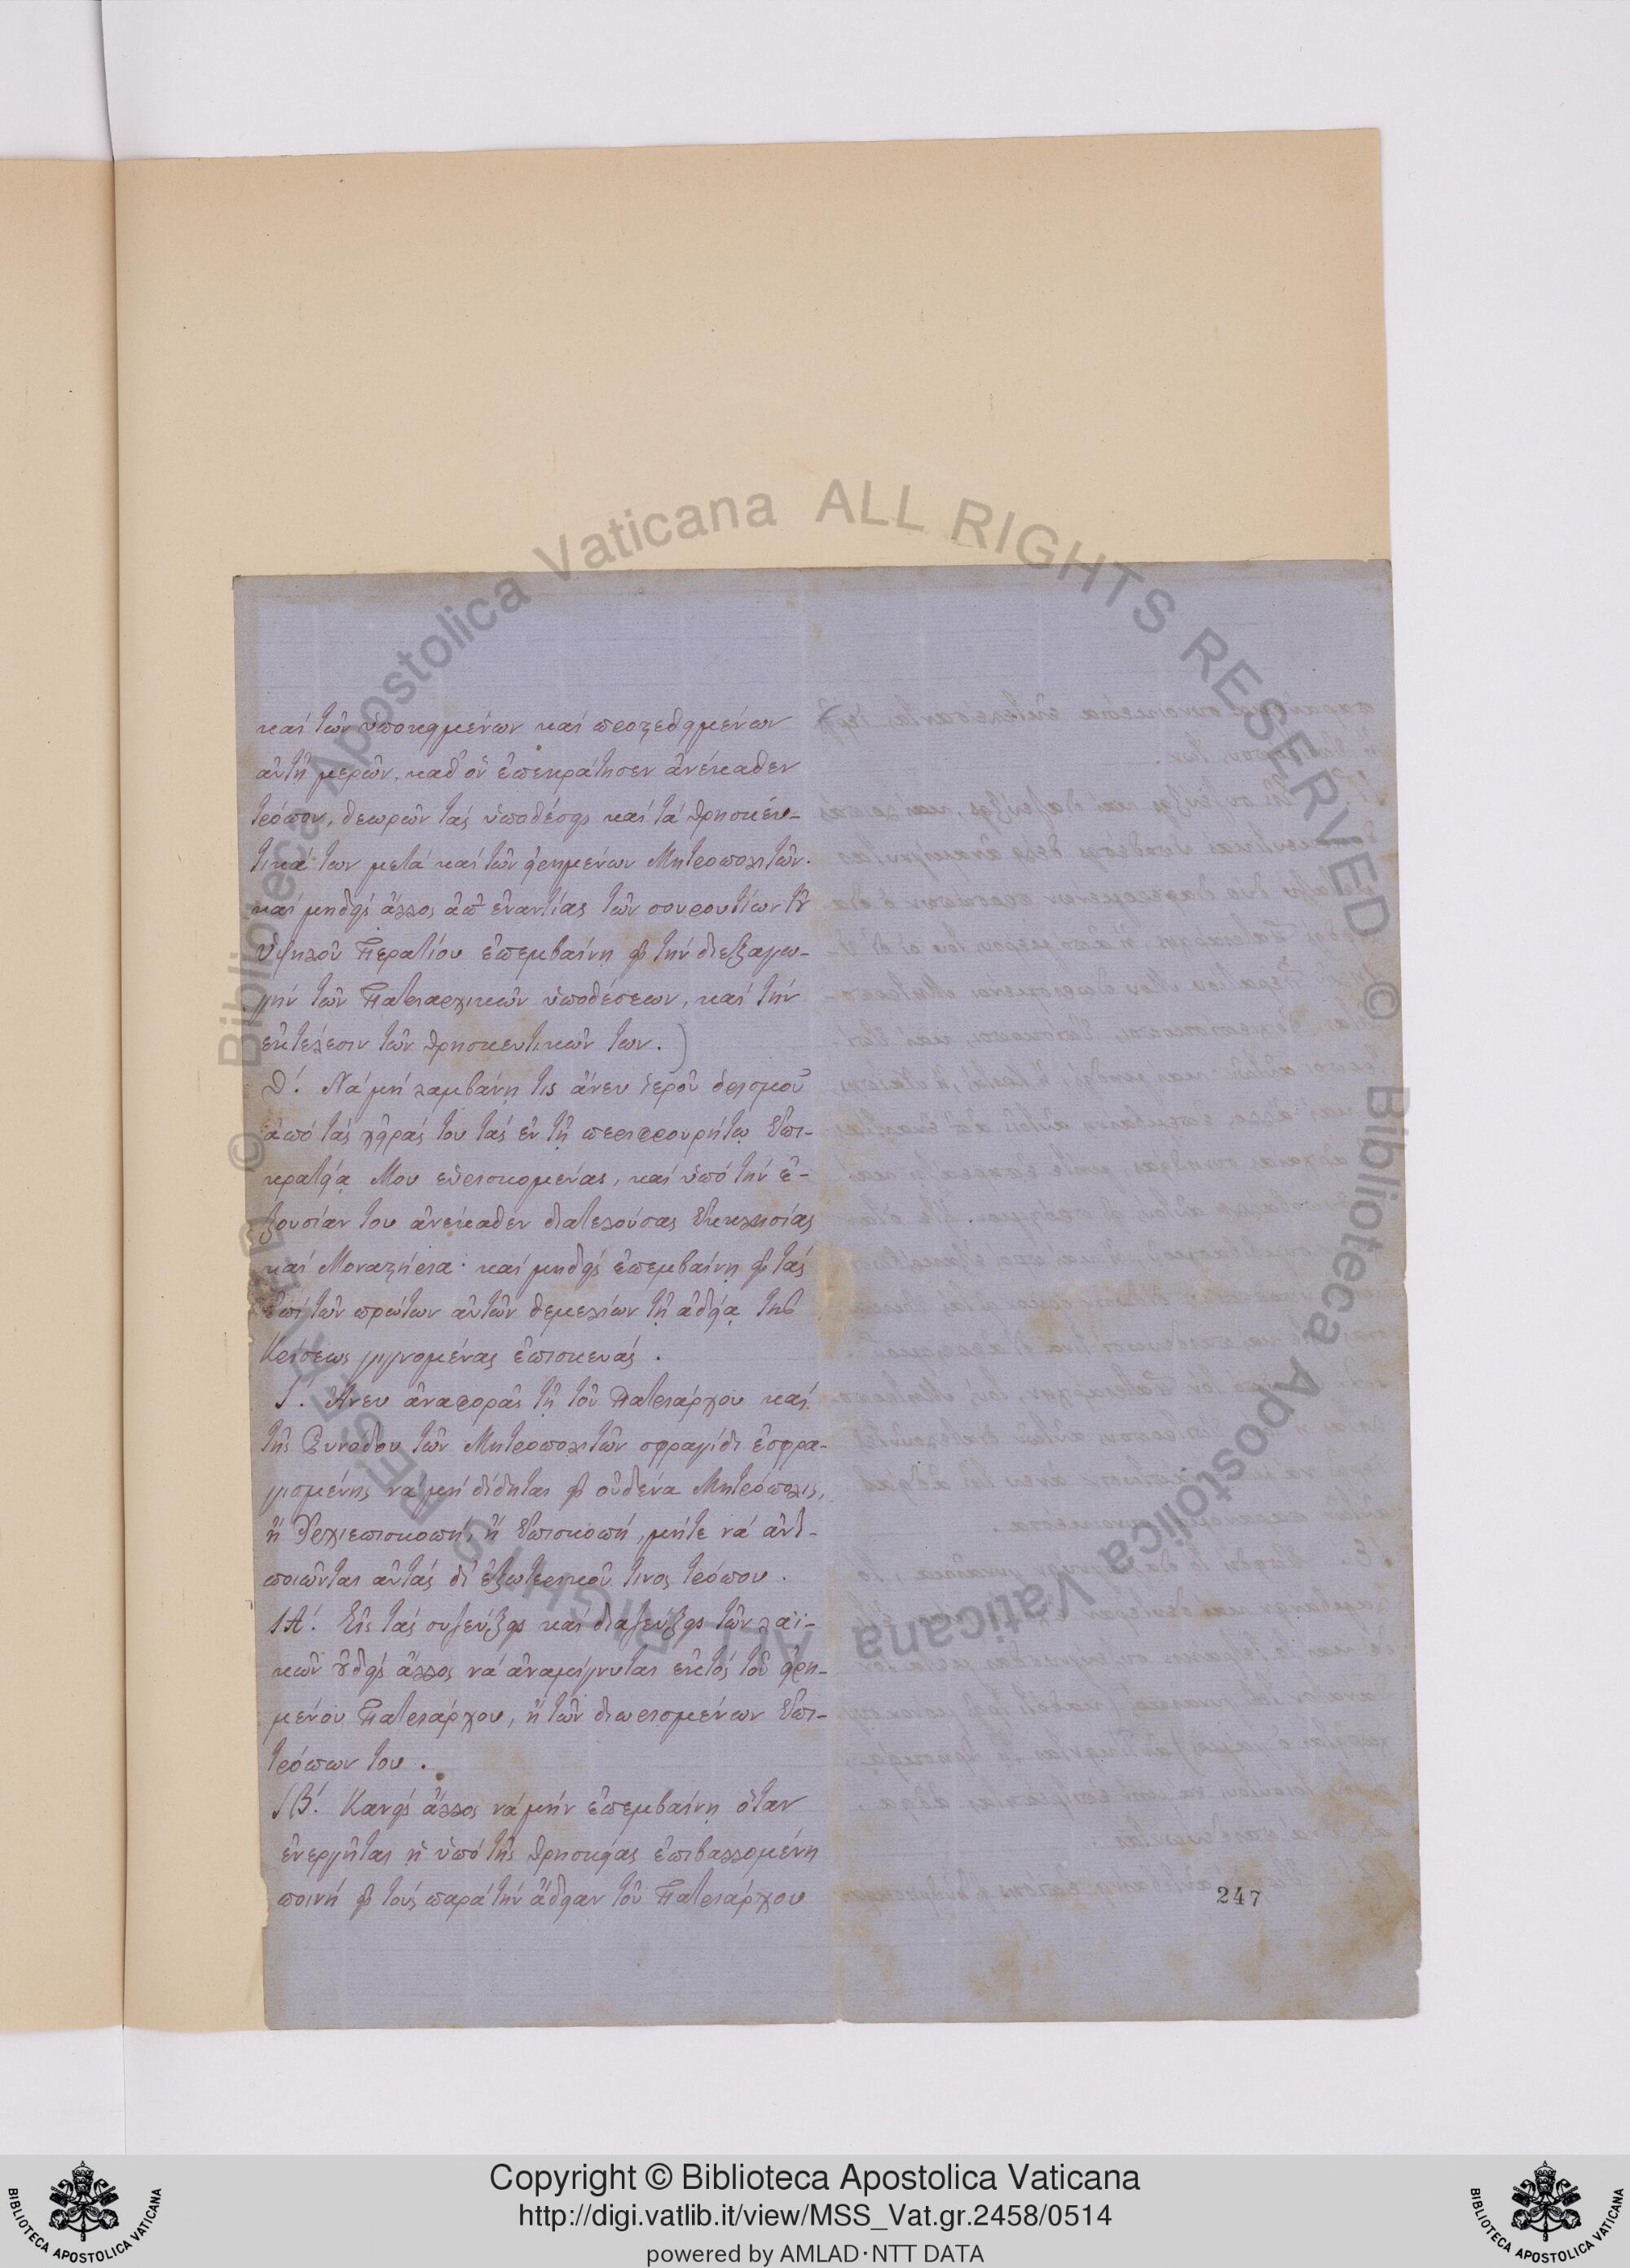 καὶ τῶν ὑποκειμένων καὶ προστεθειμένων
αὐτῇ μερῶν, καθ' ὃν ἐπεκράτησεν ἀνέκαθεν
τρόπον, θεωρῶν τὰς ὑποθέσεις καὶ τὰ θρησκευ-
τικά των μετὰ καὶ τῶν εἰρημένων Μητροπολιτῶν.
καὶ μηδεὶς ἄλλος ἀπ' ἐναντίας τῶν σουρουτίων τοῦ
Ὑψηλοῦ Βερατίου ἐπεμβαίνῃ εἰς τὴν διεξαγω-
γὴν τῶν Πατριαρχικῶν ὑποθέσεων, καὶ τὴν
ἐκτέλεσιν τῶν θρησκευτικῶν των.)
Θ΄. Νὰ μὴ λαμβάνῃ τις ἄνευ ἱεροῦ ὁρισμοῦ
ἀπὸ τὰς χεῖράς του τὰς ἐν τῇ περιφρουρήτῳ Ἐπι-
κρατείᾳ Μου εὑρισκομένας, καὶ ὑπὸ τὴν ἐ-
ξουσίαν του ἀνέκαθεν διατελούσας Ἐκκλησίας
καὶ Μοναστήρια· καὶ μηδεὶς ἐπεμβαίνῃ εἰς τὰς
ἐπὶ τῶν πρώτων αὐτῶν θεμελίων τῇ ἀδείᾳ τῆς
Κρίσεως γιγνομένας ἐπισκευάς.
Ι΄. Ἄνευ ἀναφορᾶς τῇ τοῦ Πατριάρχου καὶ
τῆς Συνόδου τῶν Μητροπολιτῶν σφραγίδι ἐσφρα-
γισμένης νὰ μὴ δίδηται εἰς οὐδένα Μητρόπολις,
ἢ Ἀρχιεπισκοπή, ἢ Ἐπισκοπή, μήτε νὰ ἀντι-
ποιῶνται αὐτὰς δι' ἐξωτερικοῦ τινος τρόπου.
ΙΑ΄. Εἰς τὰς συζεύξεις καὶ διαζεύξεις τῶν λαϊ-
κῶν οὐδεὶς ἄλλος νὰ ἀναμιγνύεται ἐκτὸς τοῦ εἰρη-
μένου Πατριάρχου, ἢ τῶν διωρισμένων Ἐπι-
τρόπων του.
ΙΒ΄. Κανεὶς ἄλλος νὰ μὴν ἐπεμβαίνῃ ὅταν
ἐνεργῆται ἡ ὑπὸ τῆς θρησκείας ἐπιβαλλομένη
ποινὴ εἰς τοὺς παρὰ τὴν ἄδειαν τοῦ Πατριάρχου
247
Copyright © Biblioteca Apostolica Vaticana
http://digi.vatlib.it/view/MSS_Vat.gr.2458/0514
powered by AMLAD·NTT DATA
BIBLIOTECA APOSTOLICA VATICANA
BIBLIOTECA APOSTOLICA VATICANA
© Biblioteca Apostolica Vaticana ALL RIGHTS RESERVED
© Biblioteca Apostolica Vaticana ALL RIGHTS RESERVED